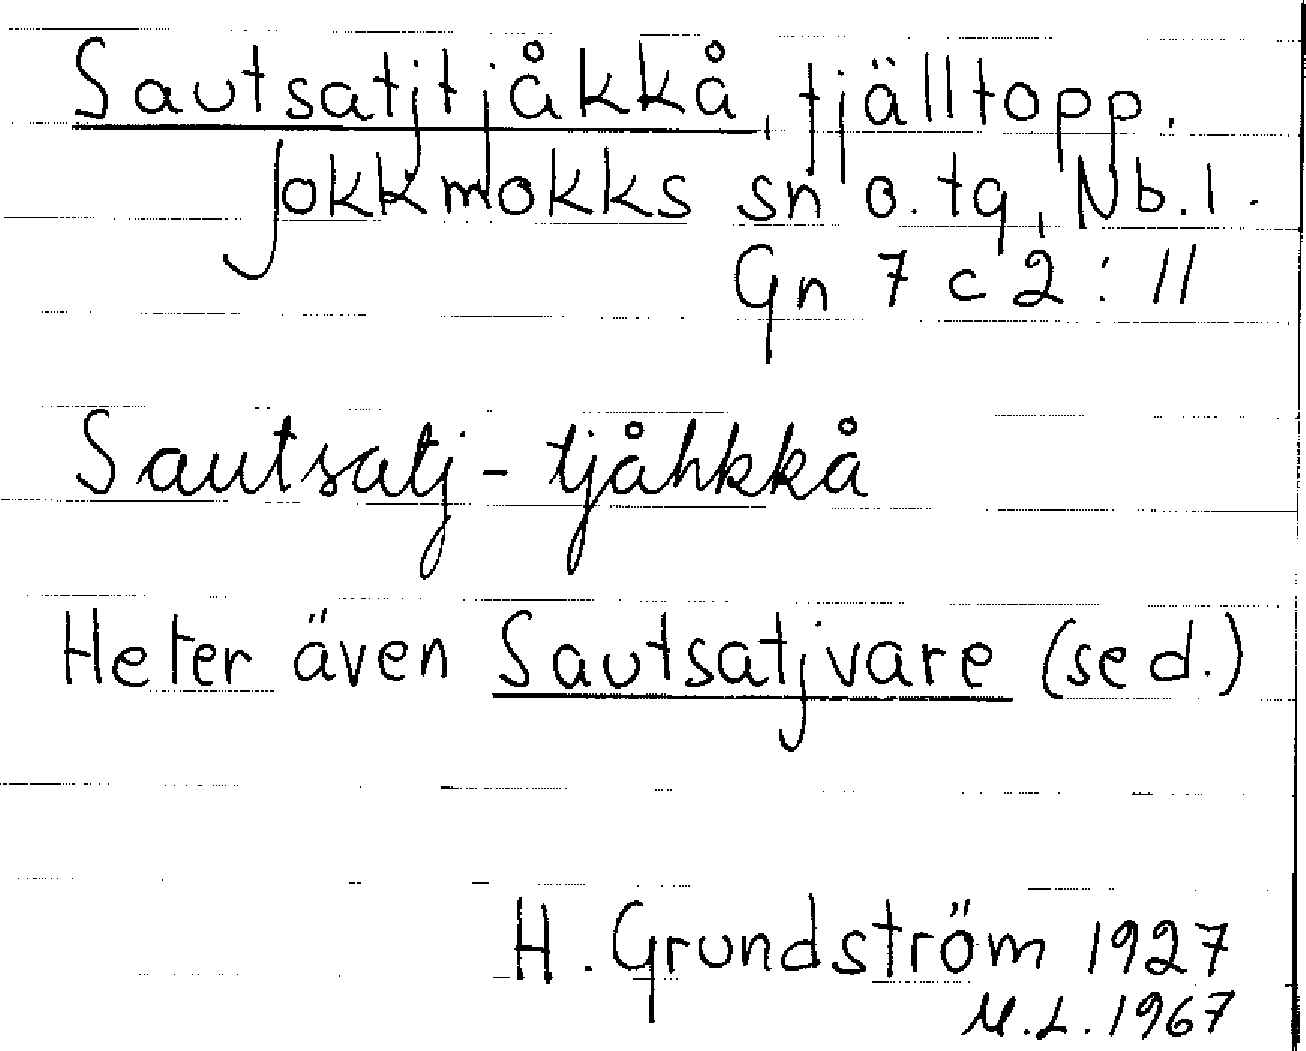 Sautsatjtjåkkå, fjälltopp.
Jokkmokks sn o. tg, Nb.l.
Gn 7 c 2 : 11
Sautsatj - tjåhkkå
Heter även Sautsatjvare (se d.)
H. Grundström 1927
M.L. 1967